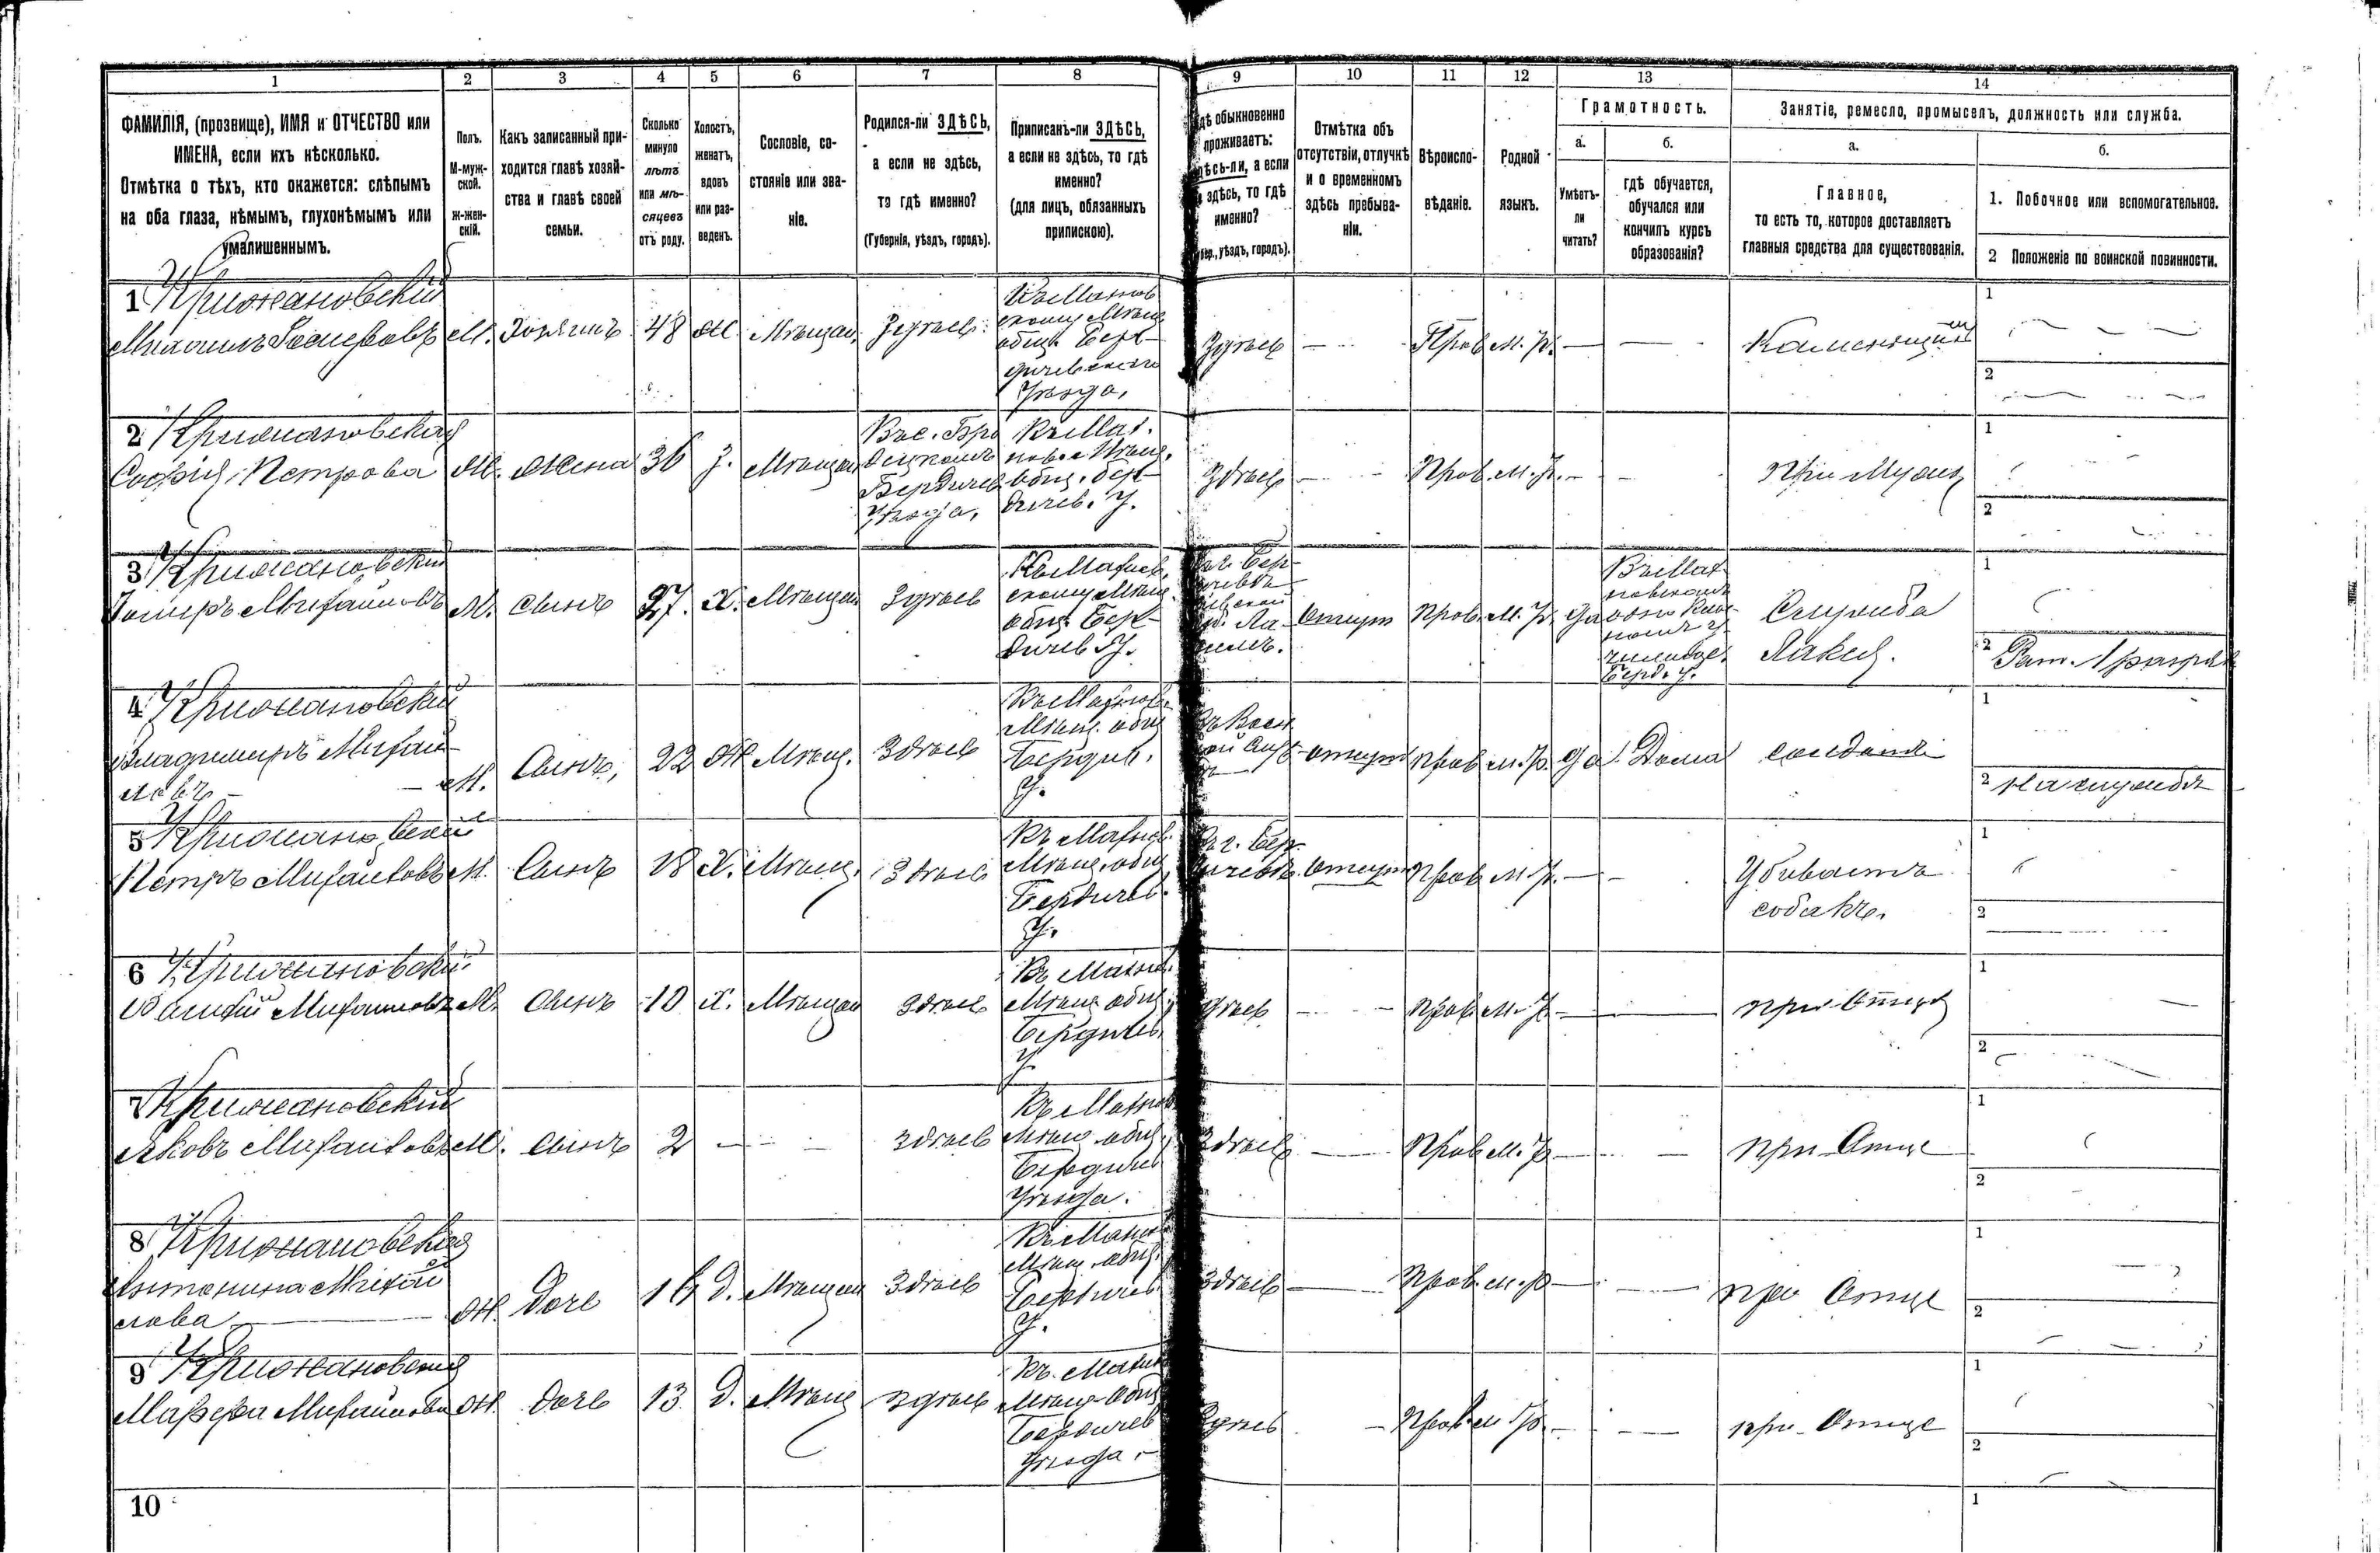 1 2 3 4 5 6 7 8 9 10 11 12 13 14
ФАМИЛІЯ, (прозвище), ИМЯ и ОТЧЕСТВО или
ИМЕНА, если ихъ нѣсколько.
Отмѣтка о тѣхъ, кто окажется: слѣпымъ
на оба глаза, нѣмымъ, глухонѣмымъ или
умалишеннымъ.
Полъ.
М-муж-
ской.
Ж-жен-
скій.
Какъ записанный при-
ходится главѣ хозяй-
ства и главѣ своей
семьи.
Сколько
минуло
лѣтъ
или мѣ-
сяцевъ
отъ роду.
Холостъ,
женатъ,
вдовъ
или раз-
веденъ.
Сословіе, со-
стояніе или зва-
ніе.
Родился-ли ЗДѢСЬ,
а если не здѣсь,
то гдѣ именно?
(Губернія, уѣздъ, городъ).
Приписанъ-ли ЗДѢСЬ,
а если не здѣсь, то гдѣ
именно?
(для лицъ, обязанныхъ
припискою).
гдѣ обыкновенно
проживаетъ:
здѣсь-ли, а если
не здѣсь, то гдѣ
именно?
(Губер., уѣздъ, городъ).
Отмѣтка объ
отсутствіи, отлучкѣ
и о временномъ
здѣсь пребыва-
ніи.
Вѣроиспо-
вѣданіе.
Родной
языкъ.
Грамотность.
а.
Умѣетъ-
ли
читать?
б.
гдѣ обучается,
обучался или
кончилъ курсъ
образованія?
Занятіе, ремесло, промыселъ, должность или служба.
а.
Главное,
то есть то, которое доставляетъ
главныя средства для существованія.
б.
1. Побочное или вспомогательное.
2 Положеніе по воинской повинности.
1 Крижановскій
Михаилъ
М. Хозяинъ 48 Ж. Мѣщан. Здѣсь
Къ Махнов
скому Мѣщ.
общ. Бер-
дичевского
Уѣзда.
Здѣсь — Прав. М. Р. — —
Каменщикъ
1
2
2 Крижановская
Софія Петрова
Ж. Жена 36 З. Мѣщан
Бердичев
Уѣзда.
Къ Мах.
нов. Мѣщ.
общ. Бер-
дичев. У.
Здѣсь — Прав. М. Р. —
При Мужѣ
1
2
3 Крижановскій
Михайловъ
М. Сынъ 27. Х. Мѣщан Здѣсь
Къ Махнов.
скому Мѣщ.
общ. Бер-
дичев У.
Въ г. Бер-
дичевѣ
Кіевской
Отсут Прав. М. Р. Да
Въ Мах
новскомъ
Берд. У.
Служба
Лакей.
1
2 Рат. 1 разряд
4 Крижановскій
Владимиръ Михай-
ловъ —
М. Сынъ, 22 Ж Мѣщ. Здѣсь
Къ Махнов.
Мѣщ. общ
Бердич.
У.
Отсут Прав М. Р. Да Дома Солдатъ
1
2 На службѣ
5 Крижановскій
Петръ Михайловъ
М. Сынъ 18 Х. Мѣщ. Здѣсь
Къ Махнов.
Мѣщ. общ
Бердичев.
У.
Въ г. Бер-
дичевѣ Отсут Прав М. Р. —
Убиваетъ
собакъ.
1
2
6 Крижановскій
Михайловъ
М. Сынъ 10 Х. Мѣщан Здѣсь
Къ Махнов.
Мѣщ общ.
Бердичев
У.
Здѣсь — Прав М. Р. —
при Отцѣ
1
2
7 Крижановскій
Яковъ Михайловъ
М. Сынъ 2 — — Здѣсь
Къ Махнов
Мѣщ общ.
Бердичев
Уѣзда.
Здѣсь — Прав М. Р. — —
При Отце
1
2
8 Крижановская
Антонина Михай
лова —
Ж. Дочь 16 Д. Мѣщан Здѣсь
Къ Махнов
Мѣщ. общ.
Бердичев
У.
Здѣсь — Прав М. Р — —
при Отце
1
2
9 Крижановская
Михайлова
Ж. Дочь 13 Д. Мѣщ Здѣсь
Къ Махнов
Мѣщ. Общ
Бердичев
Уѣзда. —
Здѣсь — Прав М Р. — —
при Отце
1
2
10
1